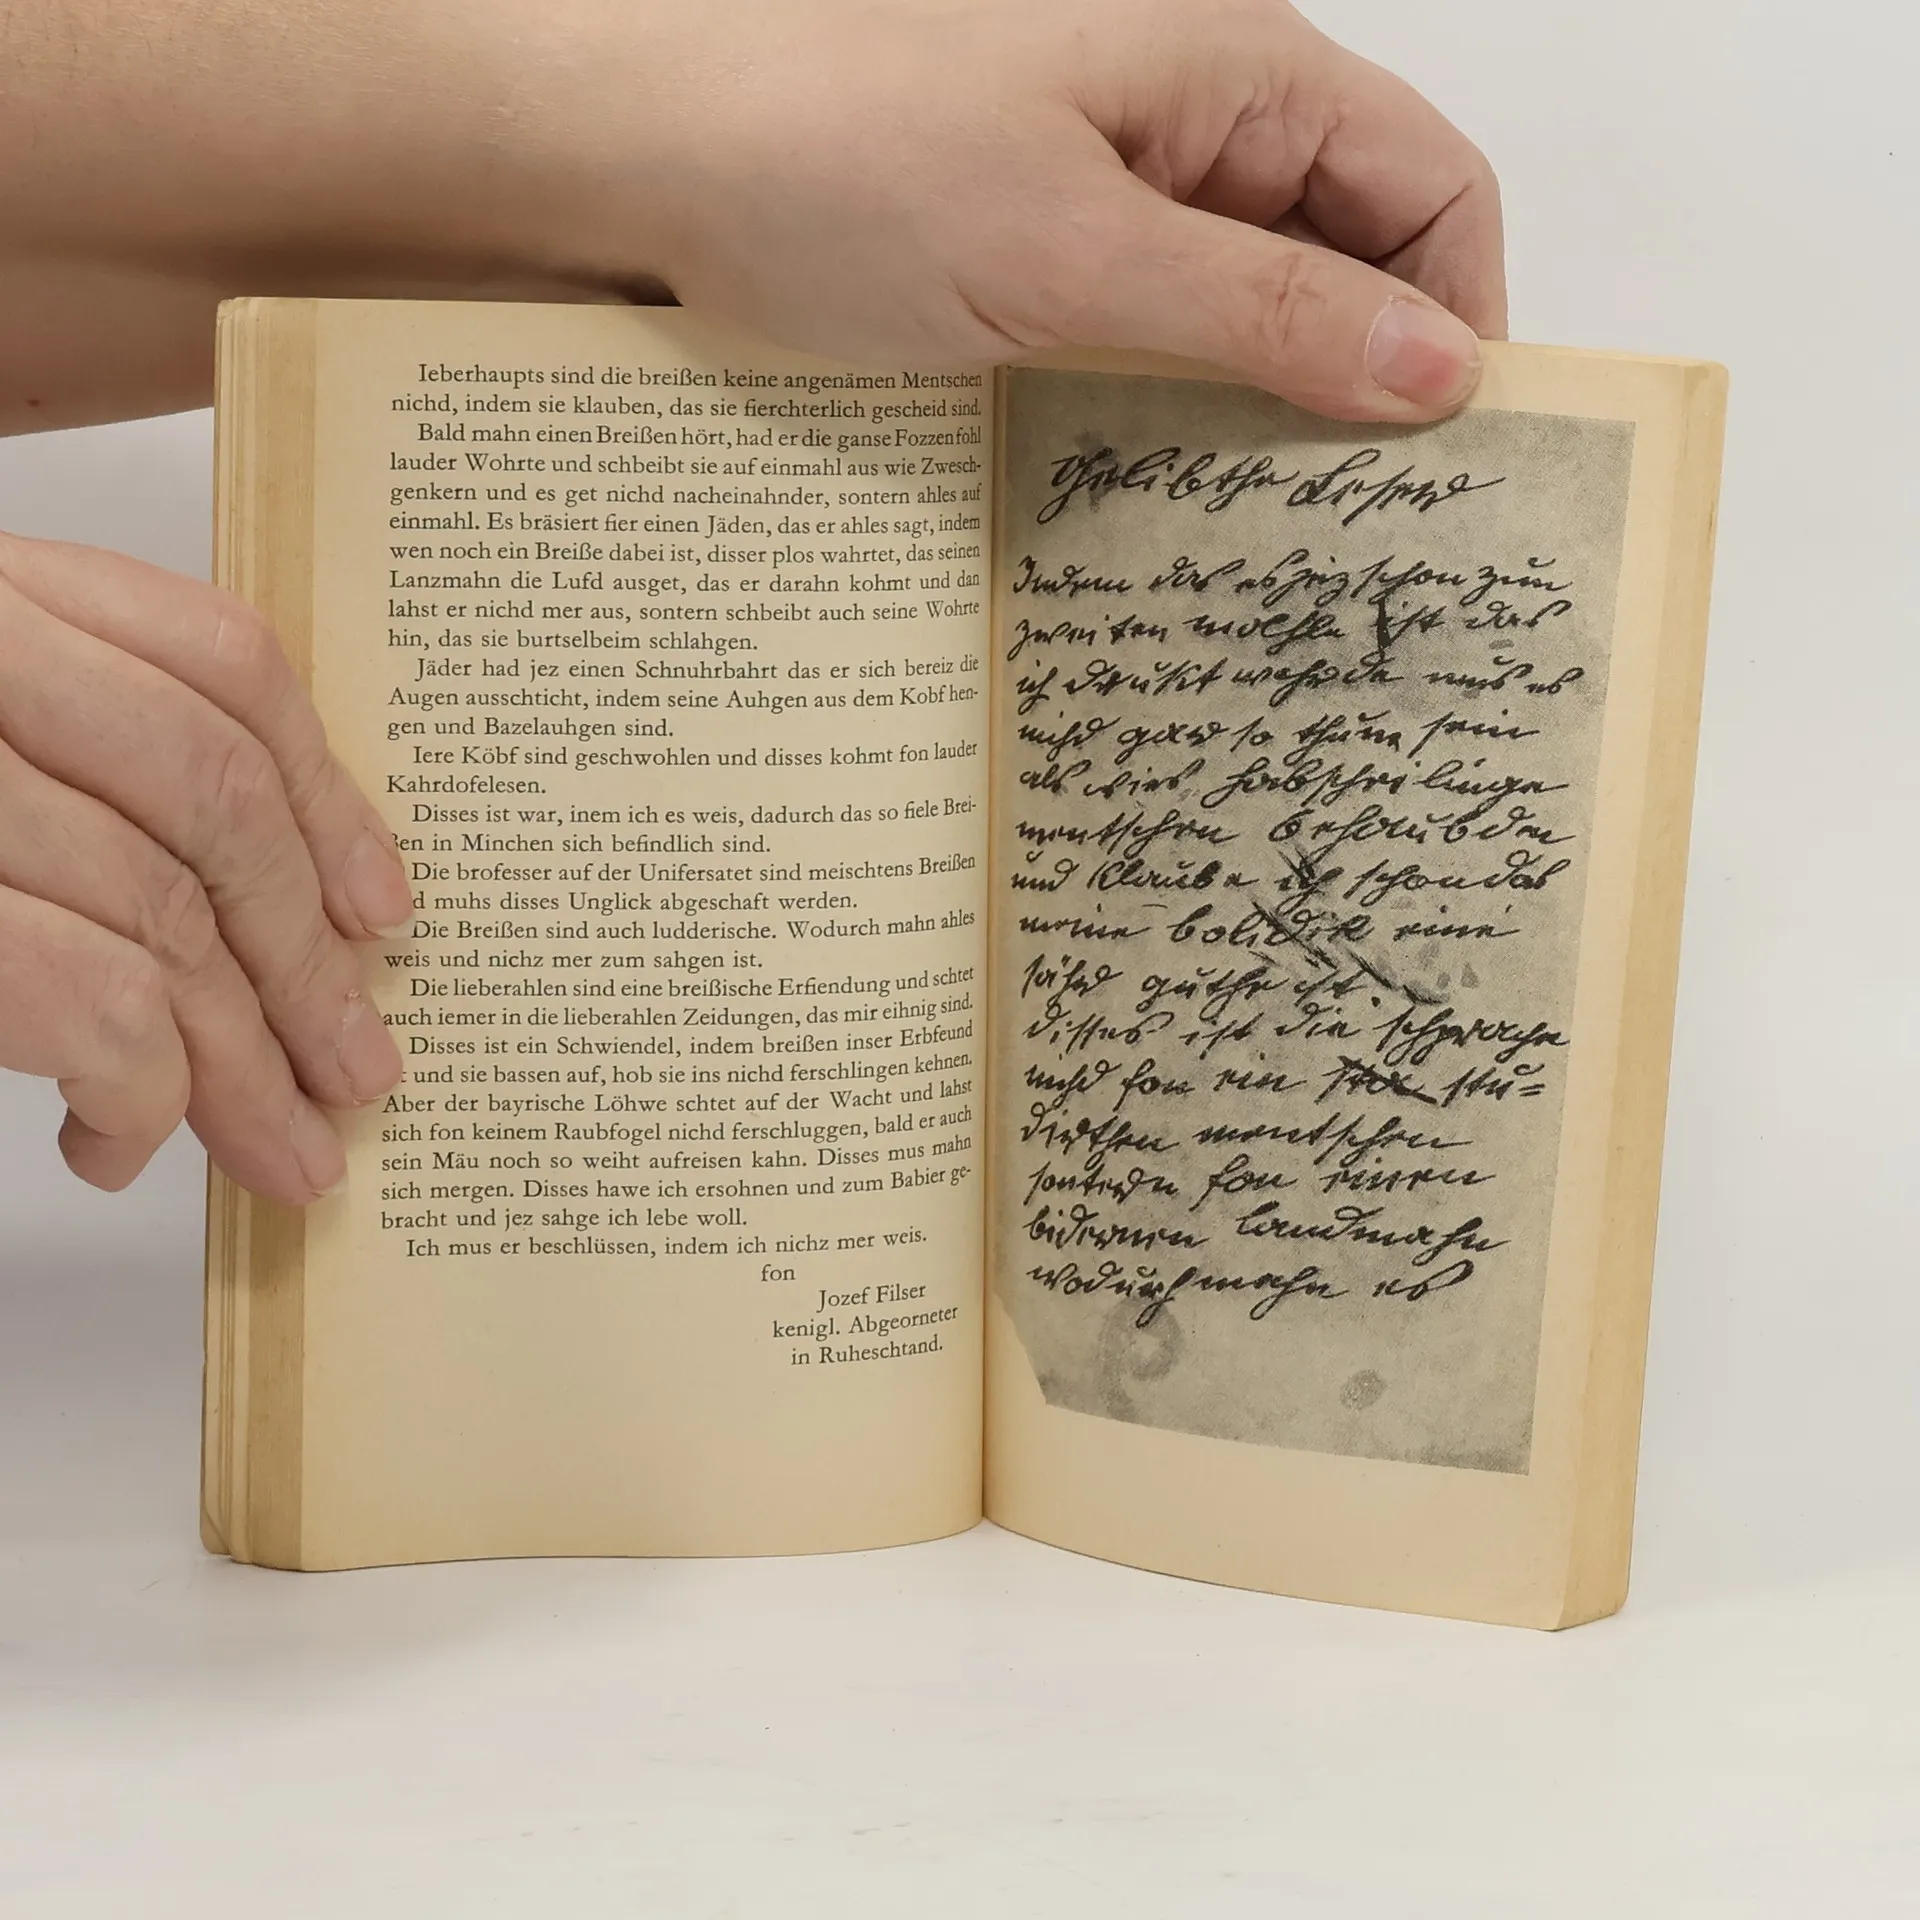 Ieberhaupts sind die breißen keine angenämen Mentschen
nichd, indem sie klauben, das sie fierchterlich gescheid sind.
Bald mahn einen Breißen hört, had er die ganse Fozzen fohl
lauder Wohrte und schbeibt sie auf einmahl aus wie Zwesch-
genkern und es get nichd nacheinahnder, sontern ahles auf
einmahl. Es bräsiert fier einen Jäden, das er ahles sagt, indem
wen noch ein Breiße dabei ist, disser plos wahrtet, das seinen
Lanzmahn die Lufd ausget, das er darahn kohmt und dan
lahst er nichd mer aus, sontern schbeibt auch seine Wohrte
hin, das sie burtselbeim schlahgen.
Jäder had jez einen Schnuhrbahrt das er sich bereiz die
Augen ausschticht, indem seine Auhgen aus dem Kobf hen-
gen und Bazelauhgen sind.
Iere Köbf sind geschwohlen und disses kohmt fon lauder
Kahrdofelesen.
Disses ist war, inem ich es weis, dadurch das so fiele Brei-
ßen in Minchen sich befindlich sind.
Die brofesser auf der Unifersatet sind meischtens Breißen
d muhs disses Unglick abgeschaft werden.
Die Breißen sind auch ludderische. Wodurch mahn ahles
weis und nichz mer zum sahgen ist.
Die lieberahlen sind eine breißische Erfiendung und schtet
auch iemer in die lieberahlen Zeidungen, das mir eihnig sind.
Disses ist ein Schwiendel, indem breißen inser Erbfeund
t und sie bassen auf, hob sie ins nichd ferschlingen kehnen.
Aber der bayrische Löhwe schtet auf der Wacht und lahst
sich fon keinem Raubfogel nichd ferschluggen, bald er auch
sein Mäu noch so weiht aufreisen kahn. Disses mus mahn
sich mergen. Disses hawe ich ersohnen und zum Babier ge-
bracht und jez sahge ich lebe woll.
Ich mus er beschlüssen, indem ich nichz mer weis.
fon
Jozef Filser
kenigl. Abgeorneter
in Ruheschtand.
Gelibthe Leser
Indem das es jez schon zum
zweiten mahle ist das
ich drukt wehrde mus es
nichd gar so thum sein
als wies habschei linge
mentschen behaubden
und Klaube ich schon das
meine bolidik eine
sähr guthe ist.
disses ist die schprache
nichd fon ein stu=
dirthen mentschen
sontern fon einen
bidernen landmahn
wodurch mahn es